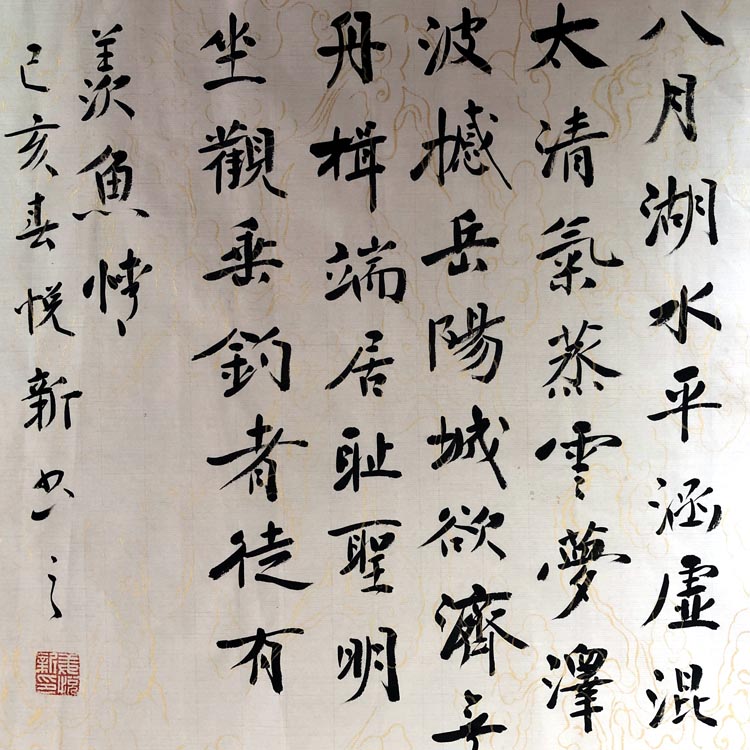 八月湖水平涵虚混
太清氣蒸雲夢澤
波撼岳陽城欲濟無
舟楫端居耻聖明
坐觀垂釣者徒有
羨魚情
己亥春悦新书之